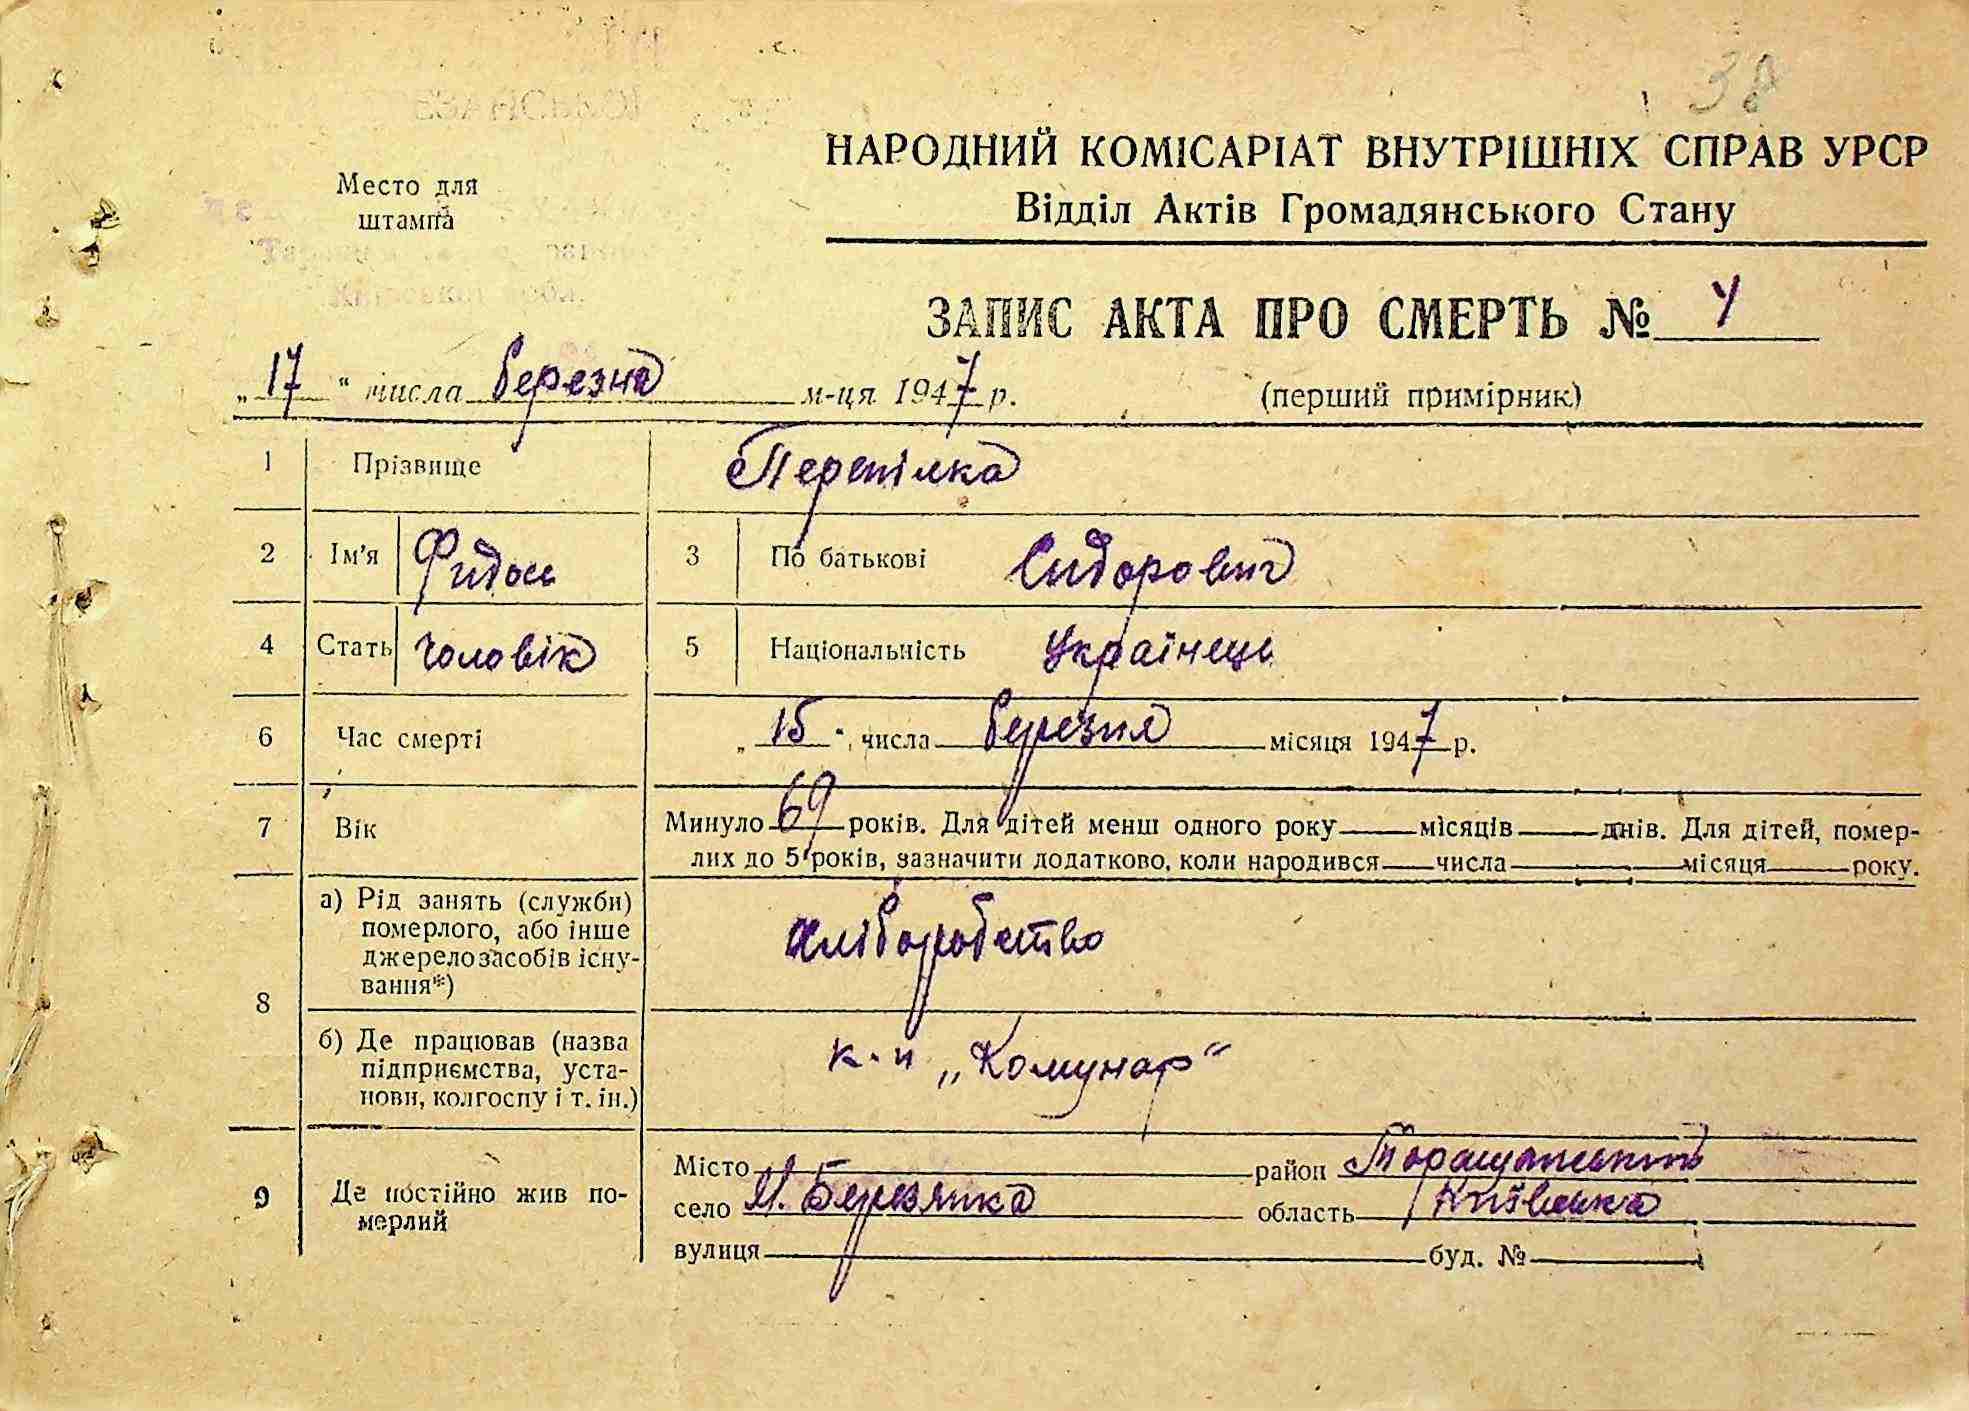 38
НАРОДНИЙ КОМІСАРІАТ ВНУТРІШНІХ СПРАВ УРСР
Відділ Актів Громадянського Стану
Место для
штампа
ЗАПИС АКТА ПРО СМЕРТЬ № 4
„17“ числа березня м-ця 1947 р. (перший примірник)
1 Прізвище Перепілка
2 Ім'я 3 По батькові Сидорович
4 Стать чоловік 5 Національність Українець
6 Час смерті „15“ числа березня місяця 1947 р.
7 Вік Минуло 69 років. Для дітей менш одного року місяців днів. Для дітей, помер-
лих до 5 років, зазначити додатково, коли народився числа місяця року.
8 а) Рід занять (служби)
померлого, або інше
джерело засобів існу-
вання*)
хліборобство
б) Де працював (назва
підприємства, уста-
нови, колгоспу і т. ін.)
„Комунар“
9 Де постійно жив по-
мерлий
Місто район Таращанський
село М. Березянка область Київська
вулиця буд. №